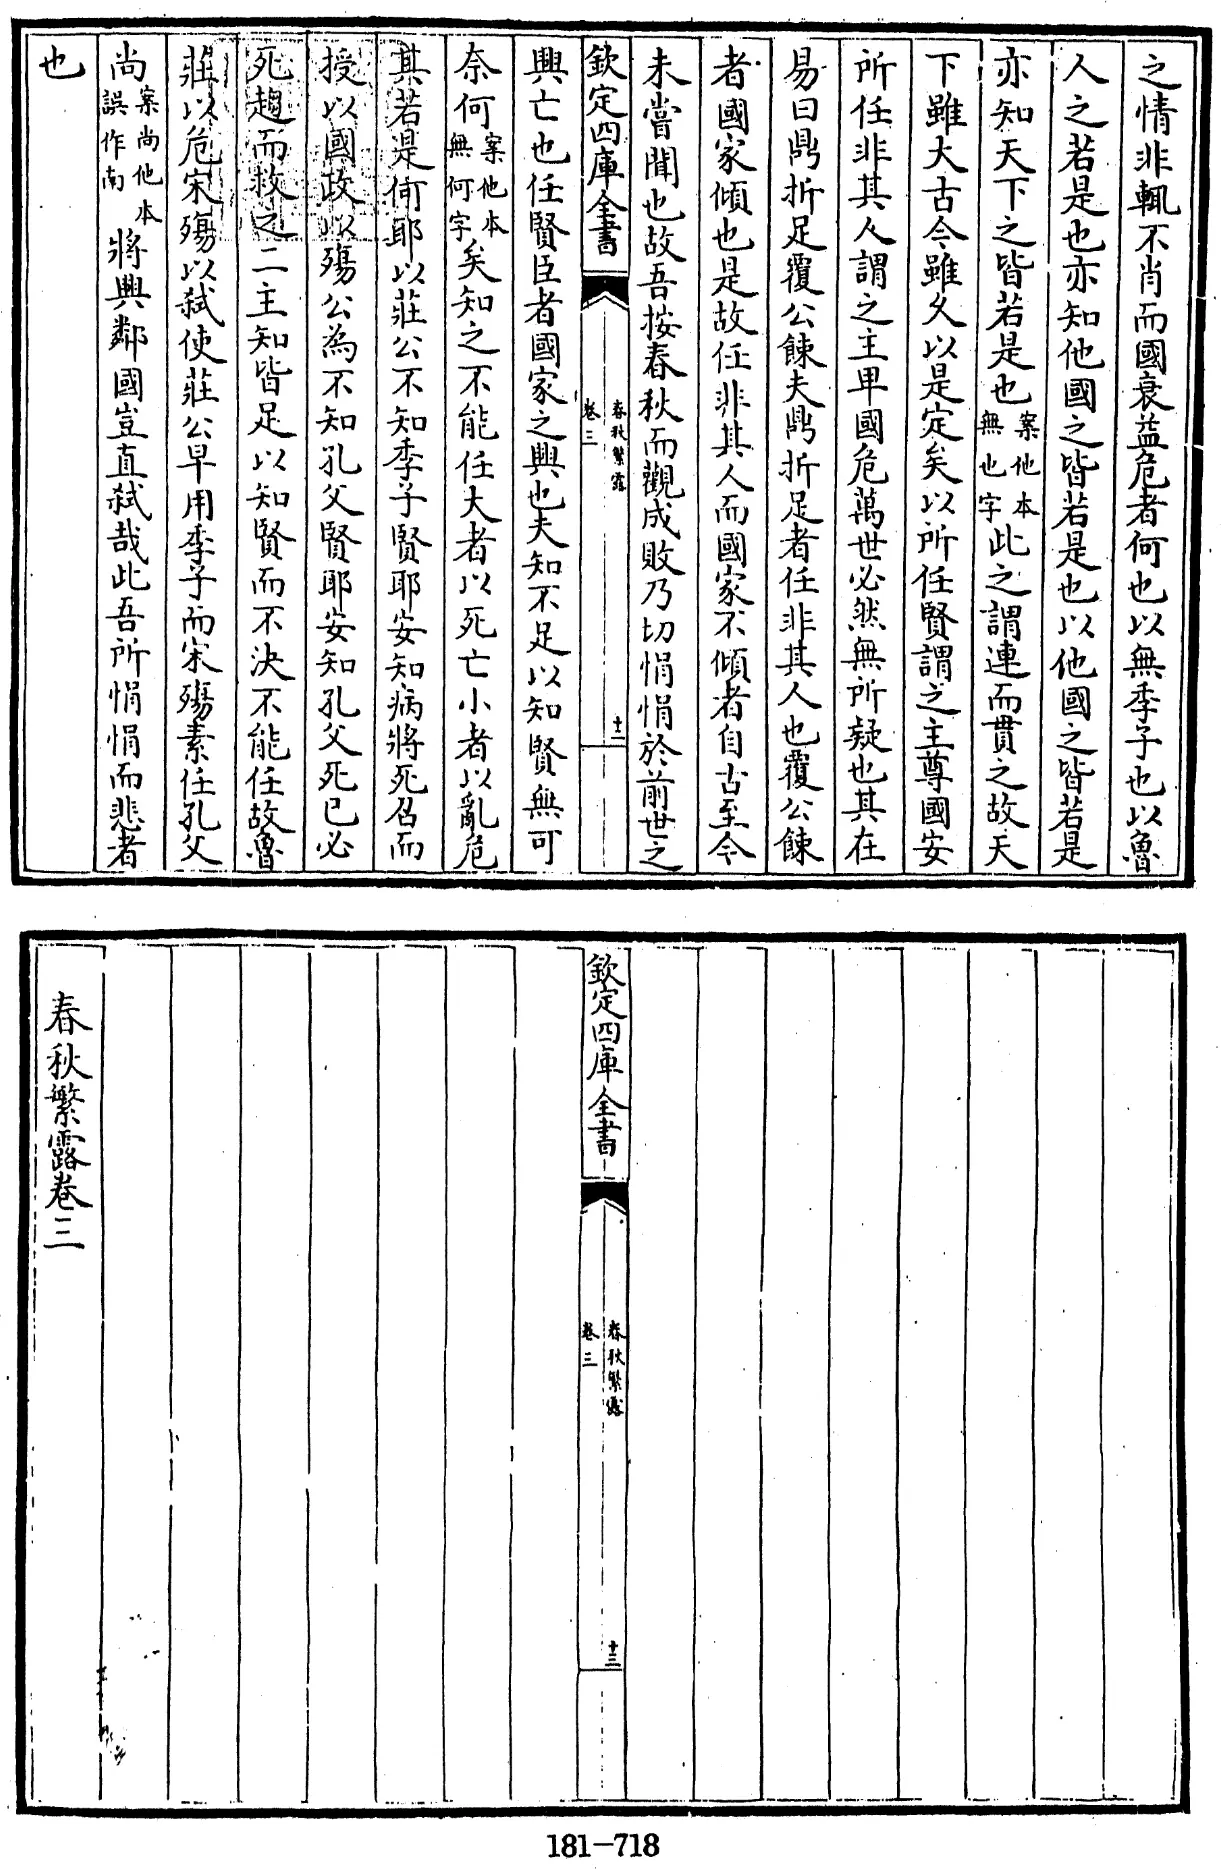 之情非輒不肖而國衰益危者何也以無季子也以魯
人之若是也亦知他國之皆若是也以他國之皆若是
亦知天下之皆若是也案他本無也字此之謂連而貫之故天
下雖大古今雖久以是定矣以所任賢謂之主尊國安
所任非其人謂之主卑國危萬世必然無所疑也其在
易曰鼎折足覆公餗夫鼎折足者任非其人也覆公餗
者國家傾也是故任非其人而國家不傾者自古至今
未嘗聞也故吾按春秋而觀成敗乃切悁悁於前世之
欽定四庫全書
春秋繁露
卷三
十二
興亡也任賢臣者國家之興也夫知不足以知賢無可
奈何案他本無何字矣知之不能任大者以死亡小者以亂危
其若是何耶以莊公不知季子賢耶安知病將死召而
授以國政以殤公為不知孔父賢耶安知孔父死已必
死趨而救之二主知皆足以知賢而不決不能任故魯
莊以危宋殤以弒使莊公早用季子而宋殤素任孔父
尚案尚他本誤作南將興鄰國豈直弒哉此吾所悁悁而悲者
也
欽定四庫全書
春秋繁露
卷三
十三
春秋繁露卷三
181-718